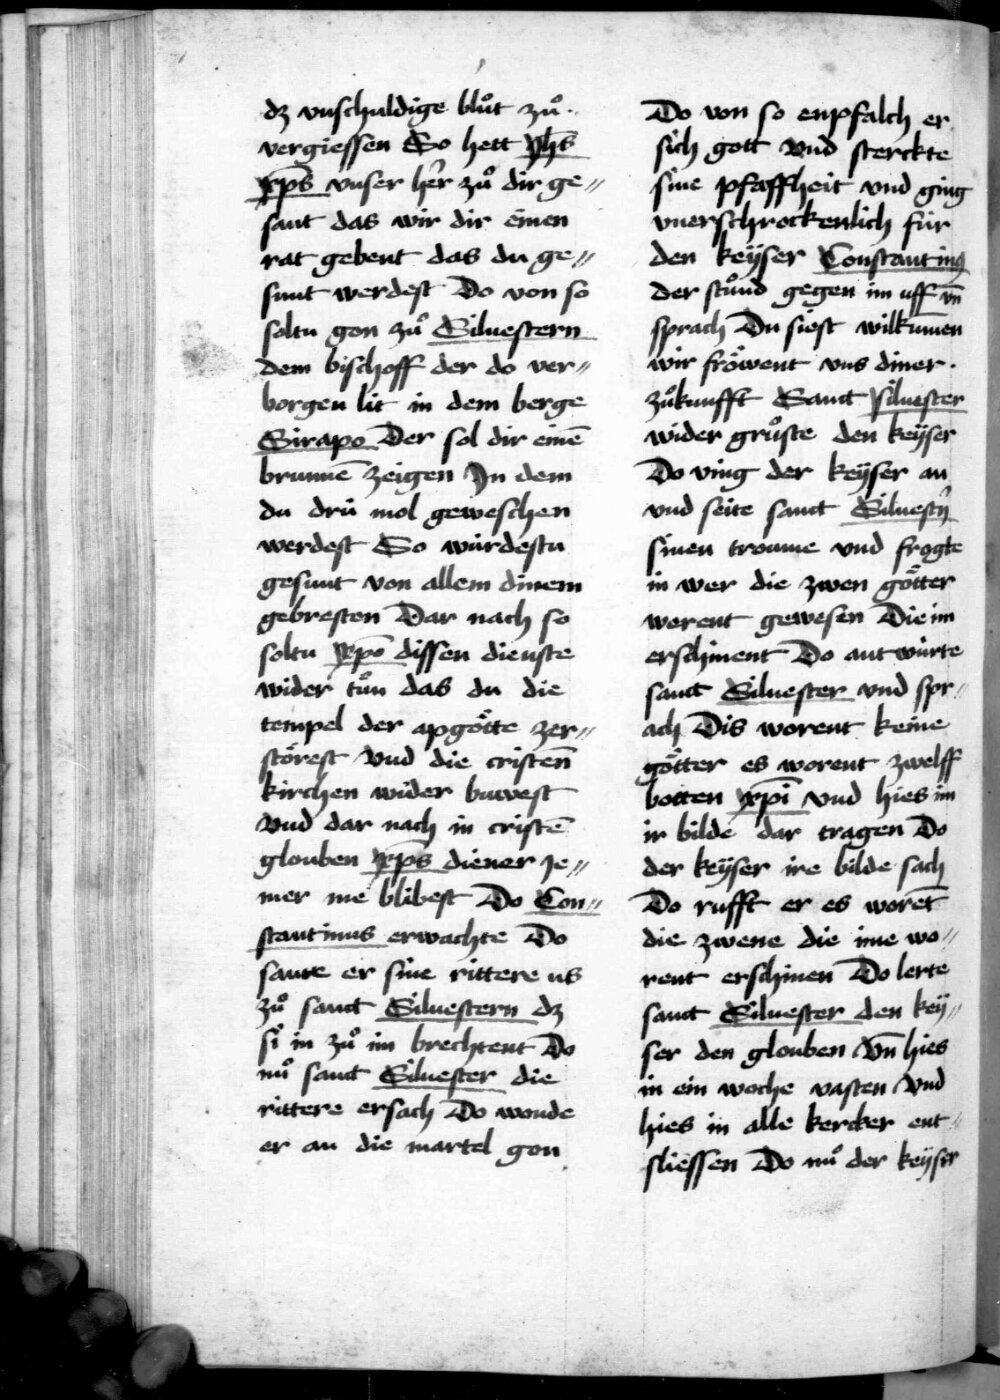 dz vnschuldige blůt zů
vergiessen So hett jh̄s
xp̄s vnser her̄ zů dir ge〃
sant das wir dir einen
rat gebent das du ge〃
sunt werdest Do von so
soltu gon zů Siluestern
dem bischoff der do ver〃
borgen lit in dem berge
Sirapo Der sol dir einē
brunnē zeigen In dem
du drü mol geweschen
werdest So würdestu
gesunt von allem dinem
gebresten Dar nach so
soltu xp̄o dissen dienste
wider tůn das du die
tempel der apgötte zer〃
störest Vnd die cristen̄
kirchen wider buwest
Vnd dar nach in cristē
glouben xp̄s diener Je〃
mer me blibest Do Con〃
stantinus erwachte Do
sante er sine rittere us
zů sanct Siluestern dz
si in zů im brechtent Do
nů sanct Siluester die
rittere ersach Do wonde
er an die martel gon
Do von so enpfalch er
sich gott Vnd sterckte
sine pfaffheit vnd ging
vnerschrockenlich für
den keÿser Constantinꝰ
der stůnd gegen im uff vn̄
sprach Du siest wilkum̄en
wir fröwent vns diner
zůkunfft Sanct siluester
wider grůste den keÿser
Do ving der keÿser an
vnd seite sanct Siluestn̄
sinen troume vnd frogte
in wer die zwen götter
werent gewesen Die im
erschinent Do antwürte
sanct Siluester vnd spr〃
ach Dis worent keine
götter es worent zwelff
botten xp̄i Vnd hies im
ir bilde dar tragen Do
der keÿser ire bilde sach
Do rufft er es woret̄
die zwene die ime wo〃
rent erschinen Do lerte
sanct Siluester den keÿ〃
ser den glouben Vn̄ hies
in ein woche vasten Vnd
hies in alle kercker ent〃
sliessen Do nů der keÿser